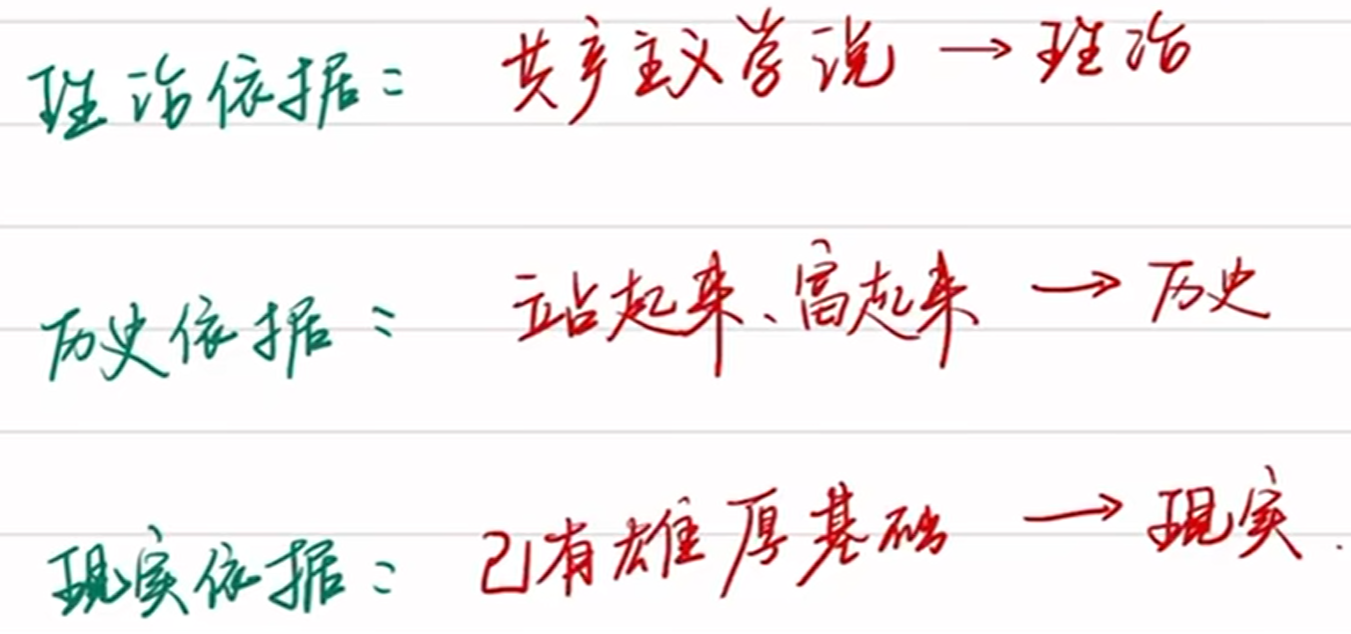 理论依据： 共产主义学说 → 理论
历史依据： 站起来、富起来 → 历史
现实依据： 已有雄厚基础 → 现实.